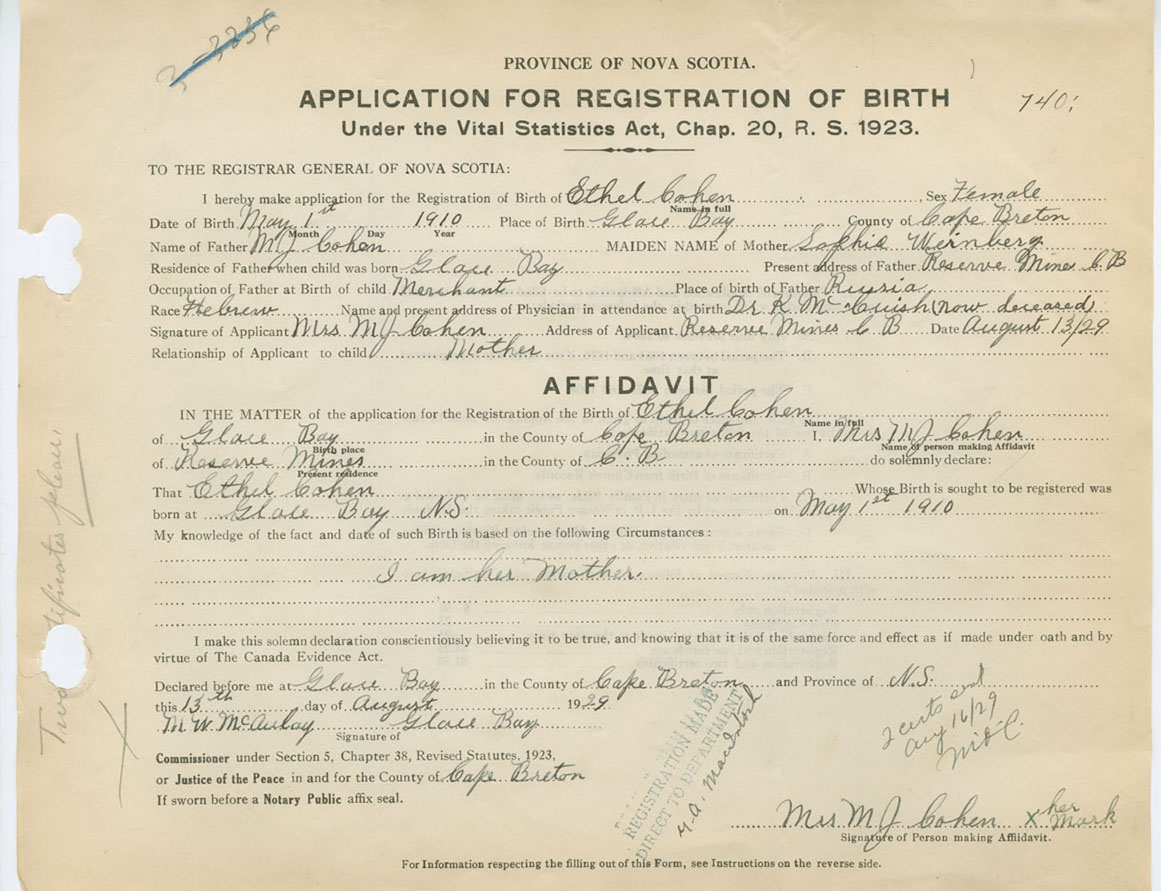 3-3356
PROVINCE OF NOVA SCOTIA.
APPLICATION FOR REGISTRATION OF BIRTH
740;
Under the Vital Statistics Act, Chap. 20, R. S. 1923.
TO THE REGISTRAR GENERAL OF NOVA SCOTIA:
I hereby make application for the Registration of Birth of Ethel Cohen, Sex Female
Name in full
Date of Birth May 1st 1910 Place of Birth Glace Bay County of Cape Breton
Month Day Year
Name of Father M J Cohen MAIDEN NAME of Mother Sophia Weinberg
Residence of Father when child was born Glace Bay Present address of Father Reserve Mines C B
Occupation of Father at Birth of child Merchant Place of birth of Father Rusria
Race Hebrew Name and present address of Physician in attendance at birth Dr K McCuish (now deceased)
Signature of Applicant Mrs M J Cohen Address of Applicant Reserve Mines C B Date August 13/29
Relationship of Applicant to child Mother
AFFIDAVIT
IN THE MATTER of the application for the Registration of the Birth of Ethel Cohen
Name in full
of Glace Bay in the County of Cape Breton I, Mrs M J Cohen
Birth place Name of person making Affidavit
of Reserve Mines in the County of C. B do solemnly declare:
Present residence
That Ethel Cohen Whose Birth is sought to be registered was
born at Glace Bay N.S. on May 1st 1910
My knowledge of the fact and date of such Birth is based on the following Circumstances:
I am her Mother.
I make this solemn declaration conscientiously believing it to be true, and knowing that it is of the same force and effect as if made under oath and by
virtue of The Canada Evidence Act.
Declared before me at Glace Bay in the County of Cape Breton and Province of N.S.
this 13th day of August 1929
M. W. McAulay Glace Bay
Signature of
Commissioner under Section 5, Chapter 38, Revised Statutes, 1923,
or Justice of the Peace in and for the County of Cape Breton
If sworn before a Notary Public affix seal.
REGISTRATION MADE
DIRECT TO DEPARTMENT
MacIntosh
2 certs
Aug 16/29
Mrs M J Cohen x her Mark
Signature of Person making Affidavit.
For Information respecting the filling out of this Form, see Instructions on the reverse side.
Two tificates please.